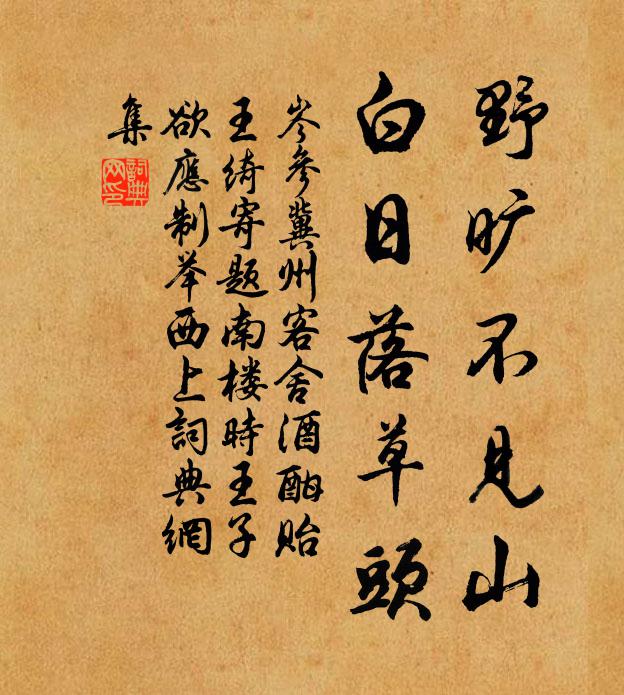 野旷不见山
白日落草頭
岑參冀州客舍酒酣贻
王绮寄题南楼時王子
欲應制举西上詞典網
集
詞典
网印